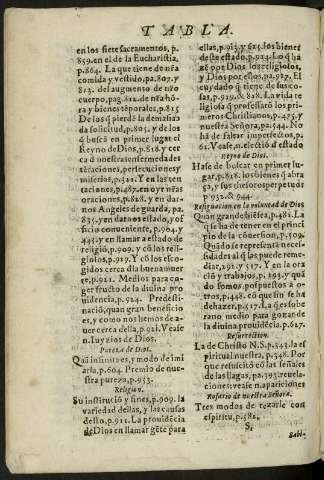 TABLA.
en los siete sacramentos, p.
859. en el de la Eucharistia,
p. 864. La que tiene de nra
comida y vestido, pa. 807. y
813. del augumento de nro
cuerpo, pag. 812. de nra hõ
ra y bienes tẽporales, p. 817
De los q̃ pierdẽ la demasia
da solicitud, p. 805. y de los
q̃ buscã en primer lugar el
Reyno de Dios, p. 818. y cer
ca d nuestras enfermedades
teraciones, persecuciones y
miserias, p. 321. Y en las ten
taciones, p. 487. en oyr nras
oraciones, p. 828. y en dar-
nos Angeles de guarda, pa.
835. y en darnos estado, y o
ficio conueniente, p. 904. y
445. y en llamar a estado de
religiõ, p. 909. y cõ los reli-
giosos, p. 919. Y cõ los esco-
gidos cerca d la bienauentu
rte, p. 921. Medios para co-
ger fructo de la diuina pro
uidencia, p. 924. Predesti-
naciõ, quan gran beneficio
es, y como nos hemos de a-
uer cerca della, p. 921. Vease
n. Iuyzios de Dios.
Pureza de Dios.
Quã infinita es, y modo de imi
tarla, p. 604. Premio de nue-
stra pureza, p. 953.
Religion.
Su instituciõ y fines, p. 909. la
variedad dellas, y las causas
desto, p. 911. La prouidẽcia
de Dios en llamar gẽte para
ellas, p. 913. y 625. los bienes
deste estado, p. 914. Lo q̃ ha
zẽ por Dios los religiosos,
y Dios por ellos, pa. 917. El
cuydado q̃ tiene de sus co-
sas, p. 919. & 828. La vida re
ligiosa q̃ professarõ los pri-
meros Christianos, p. 475. y
nuestra Señora, pa. 544. No
ha de faltar imperfectos, p.
61. Vease, n. electiõ d estado
Reyno de Dios.
Hase de buscar en primer lu-
gar, p. 818. los bienes q̃ abra
sa, y sus thesoros perpetuos
p. 932. & 944.
Resignacion en la voluntad de Dios
Quan grande biẽ sea, p. 481. La
q̃ se ha de tener en el princi
pio de la cõuersion, p. 509.
Quãdo se representã necessi-
lidades al q̃ las puede reme-
diar, 292. y 517. Y en la ora
ciõ y trabajos, p. 193. y quã
do somos pospuestos a o-
tros, p. 448. cõ que fin se ha
de hazer, p. 517. La q̃ es sobe
rano medio para gozar de
la diuina prouidẽcia, p. 627.
Resurrection.
La de Christo N. S. p. 343. la es
piritual nuestra, p. 348. Por
que resucitó cõ las señales
de las llagas, pa. 393. reuela-
ciones: vease n. apariciones
Rosario de nuestra Señora.
Tres modos de rezarle con
espiritu, p. 582.
S.
Sabi-